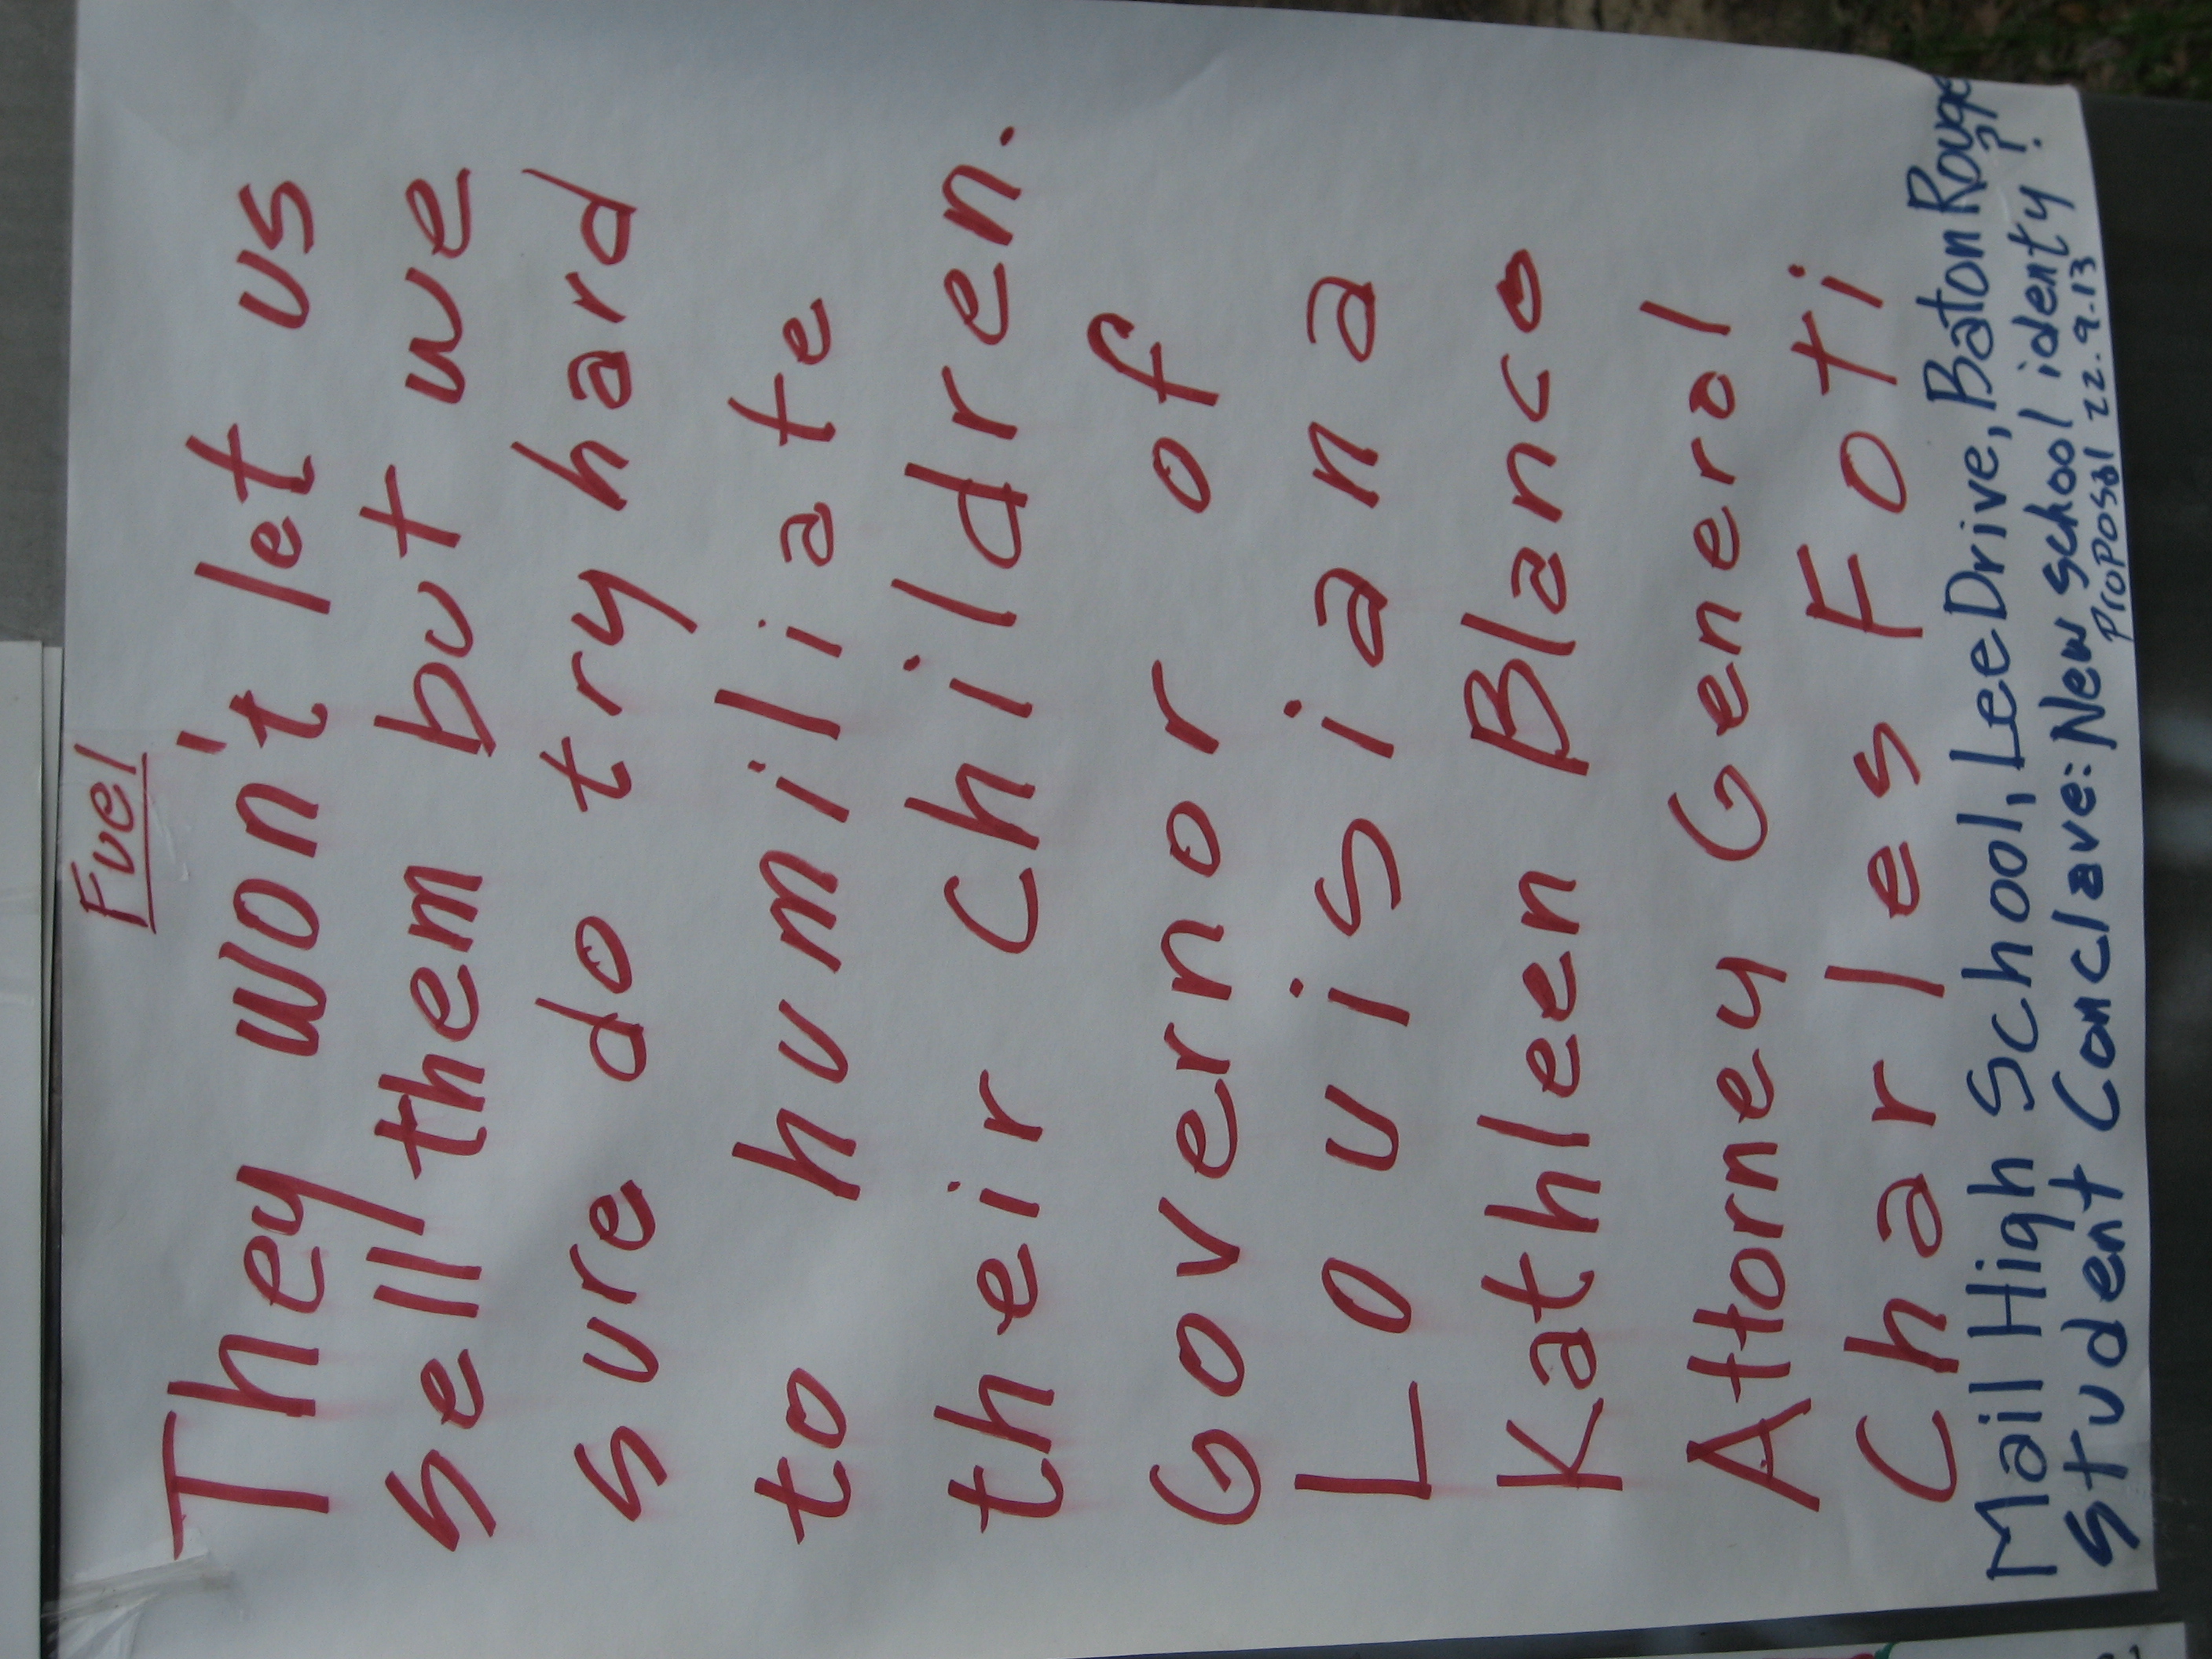 Fuel
They won't let us
sell them but we
sure do try hard
to humiliate
their children.
Governor of
Louisiana
Kathleen Blanco
Attorney Generol
Charles Foti
Mail High School, Lee Drive, Baton Rouge
Student Conclave: New school identy?
Proposal 22.9.13